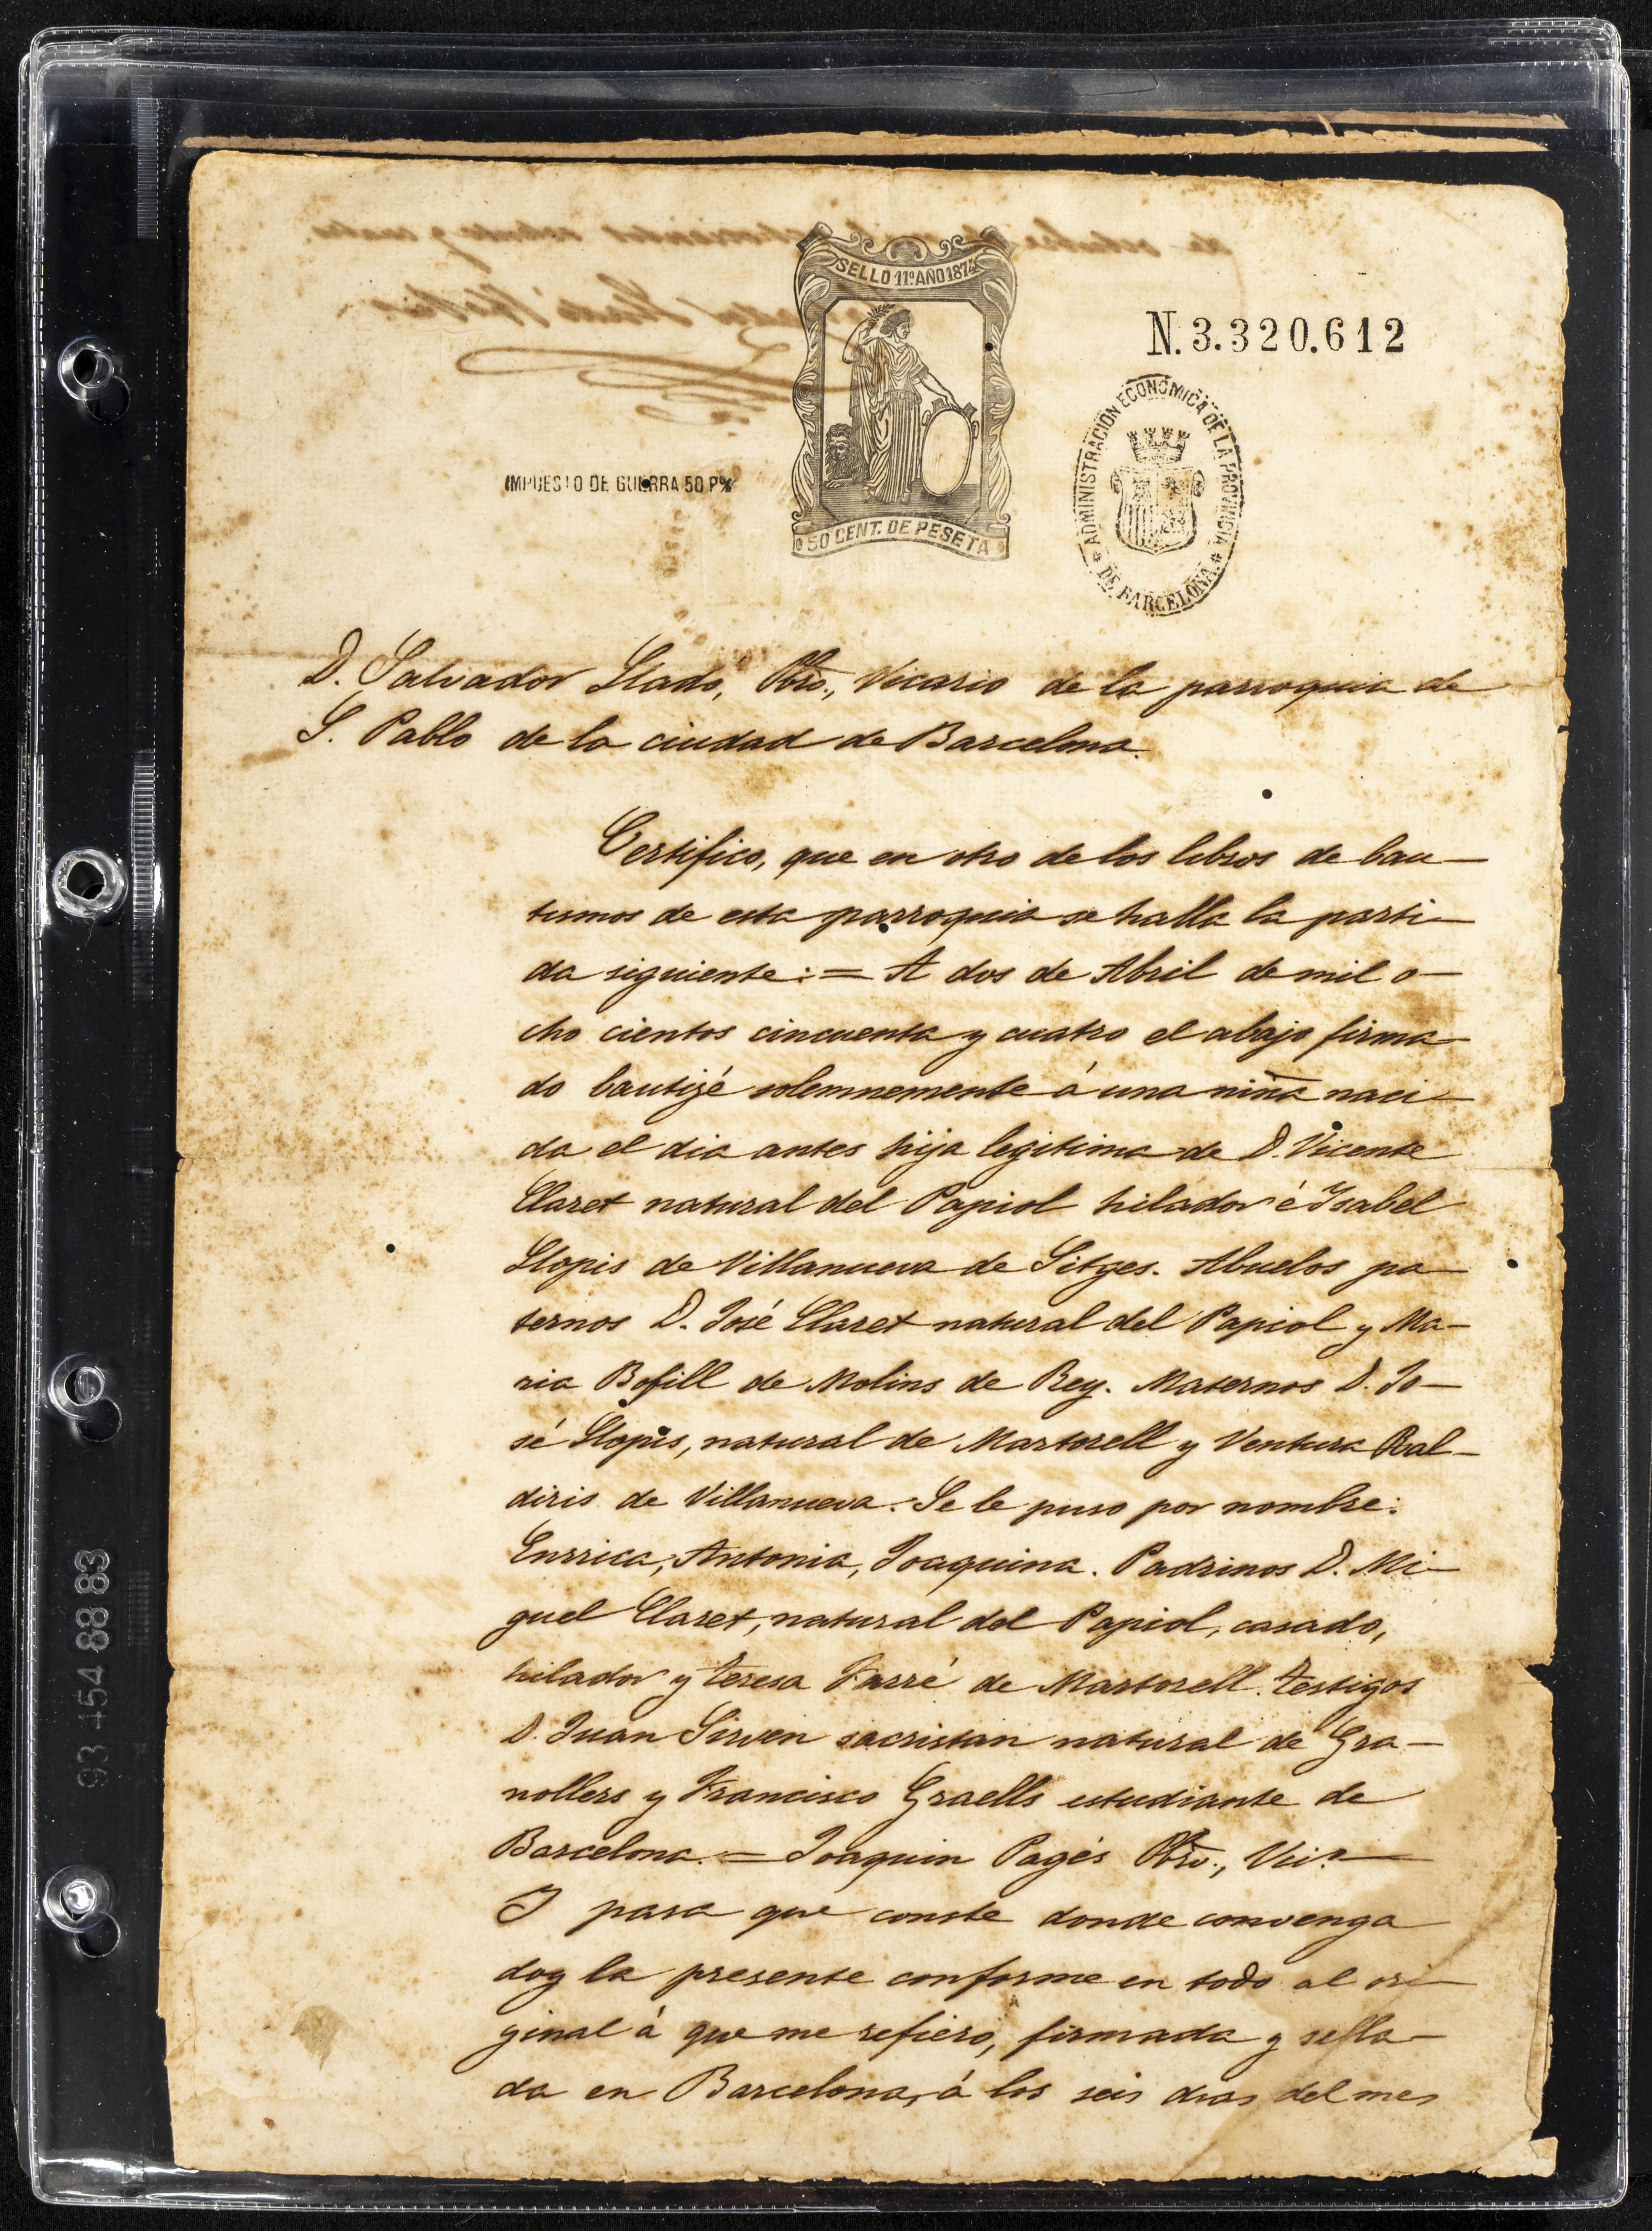 SELLO 11º AÑO 1874
N. 3.320.612
ADMINISTRACION ECONOMICA DE LA PROVINCIA
DE BARCELONA
IMPUESTO DE GUERRA 50 P%
50 CENT. DE PESETA
D. Salvador Lladó, Pbro., Vicario de la parroquia de
S. Pablo de la ciudad de Barcelona.
Certifico, que en otro de los libros de bau-
tismos de esta parroquia se halla la parti-
da siguiente: = A dos de Abril de mil o-
cho cientos cincuenta y cuatro el abajo firma-
do bautizé solemnemente á una niña naci-
da el dia antes hija legitima de D. Vicente
Claret natural del Papiol hilador é Ysabel
Llopis de Villanueva de Sitges. Abuelos pa-
ternos D. José Claret natural del Papiol y Ma-
ria Bofill de Molins de Rey. Maternos D. Jo-
sé Llopis, natural de Martorell y Ventura Bal-
diris de Villanueva. Se le puso por nombre:
Enrrica, Antonia, Joaquina. Padrinos D. Mi-
guel Claret, natural del Papiol, casado,
hilador y teresa Farré de Martorell. testigos
D. Juan Sirven sacristan natural de Gra-
nollers y Francisco Graells estudiante de
Barcelona. = Joaquin Pagés Pbro., Vic.º
Y para que conste donde convenga
doy la presente conforme en todo al ori-
ginal á que me refiero, firmada y sella-
da en Barcelona, á los seis dias del mes
93 454 88 83